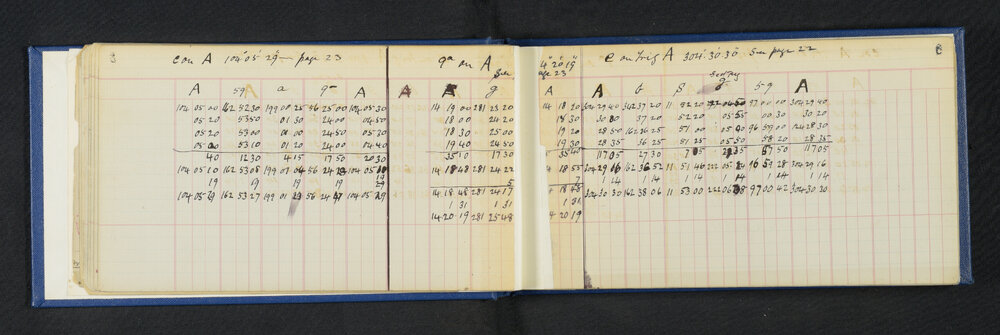 8
e on A 104° 05' 29" — page 23
A 59 a g A
104 05 00 162 52 30 199 00 25 56 25 00 104 05 30
05 20 53 50 01 30 24 00 04 50
05 20 53 00 01 00 24 50 05 20
05 00 53 10 01 20 24 00 04 40
40 12 30 4 15 17 50 20 30
104 05 10 162 53 08 199 01 04 56 24 104 05 10
19 19 19 19 19
104 05 29 162 53 27 199 01 23 56 24 47 104 05 29
9a on A See
A B g A
14 19 00 281 23 20 14 18 20
18 00 24 20 18 30
18 30 25 00 19 20
19 40 24 50 19 30
35 10 17 30 35 40
14 18 48 281 24 22 14 18 55
5 7
14 18 48 281 24 17 14 18 48
1 31 1 31 1 31
14 20 19 281 25 48 14 20 19
14° 20' 19"
page 23
e on Trig A 304° 30' 30" See page 22
8
A G 8 59 A
304 29 40 162 37 20 11 52 20 97 00 00 304 29 40
30 00 37 20 52 20 05 55 00 30 30 20
28 50 162 36 25 51 00 96 59 00 28 30
28 35 36 25 51 25 58 20 28 35
117 05 27 30 57 50 117 05
304 29 16 162 36 52 11 51 46 222 05 96 59 28 304 29 16
1 14 1 14 1 14 1 14 1 14 1 14
304 30 30 162 38 06 11 53 00 222 06 97 00 42 304 30 30